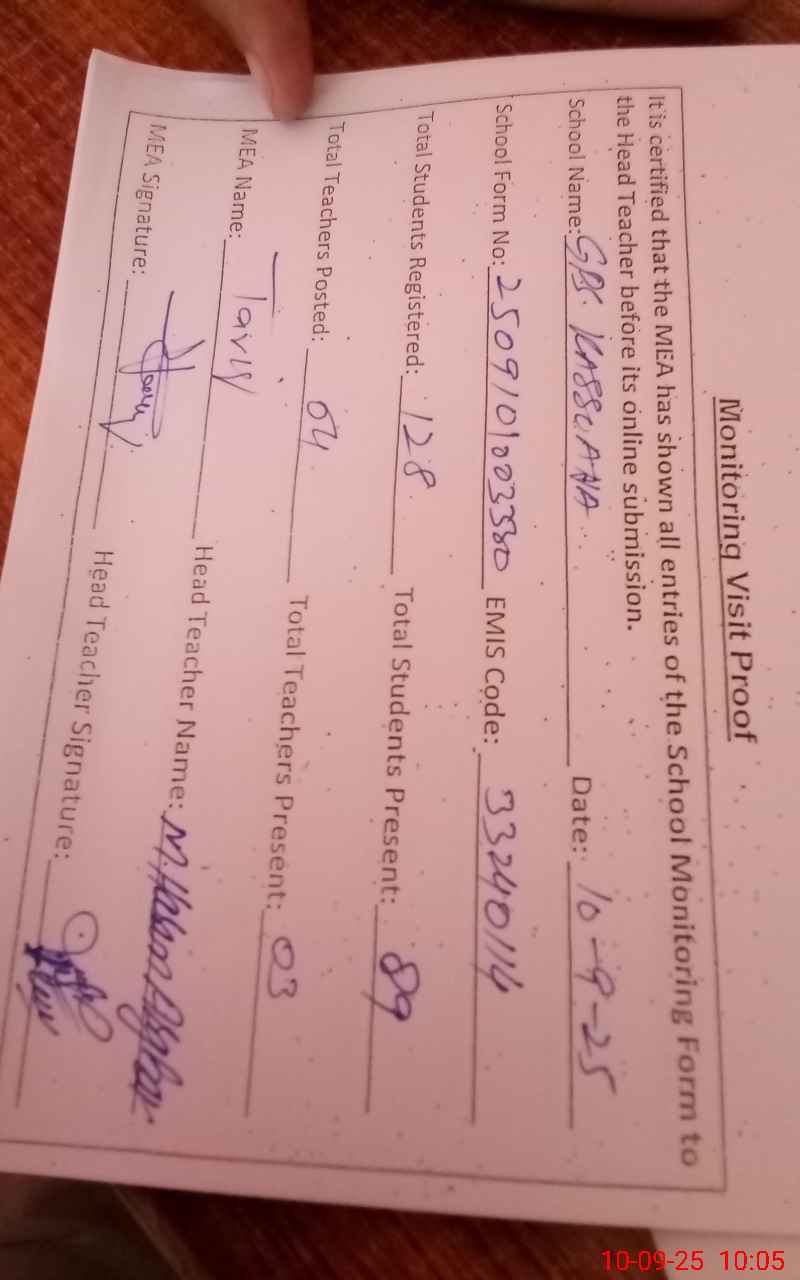 Monitoring Visit Proof
It is certified that the MEA has shown all entries of the School Monitoring Form to
the Head Teacher before its online submission.
School Name: GPS. KASSOANA Date: 10-9-25
School Form No: 2509101003380 EMIS Code: 33240114
Total Students Registered: 128 Total Students Present: 89
Total Teachers Posted: 04 Total Teachers Present: 03
MEA Name: Tariq Head Teacher Name: M.
MEA Signature: Head Teacher Signature:
10-09-25 10:05